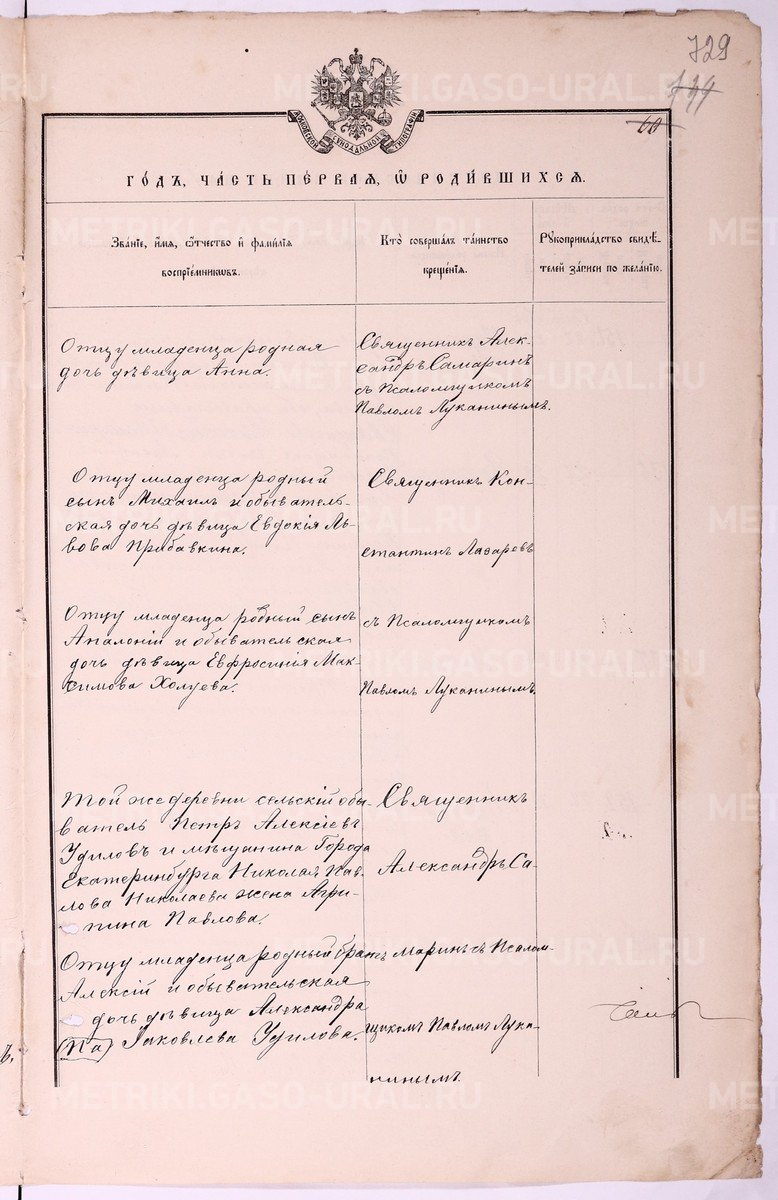 729
744
60
МОСКОВСКОЙ СѴНОДАЛЬНОЙ ТИПОГРАФІИ
ГО́ДЪ, ЧА́СТЬ ПЕ́РВАЯ, Ѡ҆ РОДИ́ВШИХСЯ.
Зва́нїе, и҆́мя, ѻ҆́тчество и҆ фами́лїя
воспрїе́мникѡвъ.
Кто̀ соверша́лъ та́инство
креще́нїя.
Рꙋкоприкла́дство свидѣ́-
телей за́писи по жела́нїю.
Отцу младенца родная
дочь дѣвица Анна.
Священникъ Алек-
сандръ Самаринъ
съ Псаломщикомъ
Павломъ Луканинымъ.
Отцу младенца родный
сынъ Михаилъ и обыватель-
ская дочь дѣвица Евдокія Ль-
вова Прибавкина.
Священникъ Кон-
стантинъ Лазаревъ
Отцу младенца родный сынъ
Аполоній и обывательская
дочь дѣвица Евфросинія Мак-
симова Холуева.
съ Псаломщикомъ
Павломъ Луканинымъ.
Той же деревни сельскій обы-
ватель Петръ Алексіевъ
Удиловъ и мѣщанина Города
Екатеринбурга Николая Пав-
лова Николаева жена Агри-
пина Павлова.
Священникъ
Александръ Са-
Отцу младенца родный братъ
Алексій и обывательская
дочь дѣвица Александра
Іаковлева Удилова.
маринъ съ Псалом-
щикомъ Павломъ Лука-
нинымъ.
METRIKI.GASO-URAL.RU